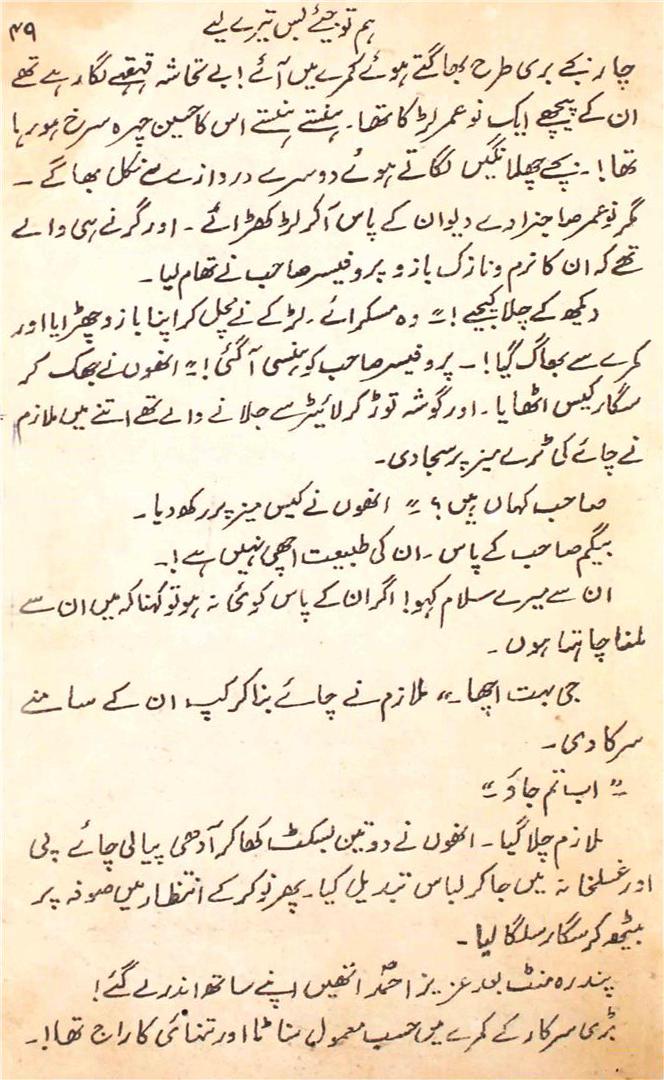 ہم تو جیئے بس تیرے لیے
۴۹
چار بچے بری طرح بھاگتے ہوئے کمرے میں آئے! بے تحاشہ قہقہے لگا رہے تھے
ان کے پیچھے ایک نو عمر لڑکا تھا۔ ہنستے ہنستے اس کا حسین چہرہ سرخ ہو رہا
تھا!۔ بچے چھلانگیں لگاتے ہوئے دوسرے دروازے سے نکل بھاگے ۔
مگر نو عمر صاحبزادے دیوان کے پاس آکر لڑکھڑائے ۔ اور گرنے ہی والے
تھے کہ ان کا نرم و نازک بازو پروفیسر صاحب نے تھام لیا۔
دیکھ کے چلا کیجیے!" وہ مسکرائے ۔ لڑکے نے مچل کر اپنا بازو چھڑایا اور
کمرے سے بھاگ گیا!۔ پروفیسر صاحب کو ہنسی آگئی!" انھوں نے جھک کر
سگار کیس اٹھایا ۔ اور گوشہ توڑ کر لائیٹر سے جلانے والے تھے اتنے میں ملازم
نے چائے کی ٹرے میز پر سجا دی۔
صاحب کہاں ہیں؟" انھوں نے کیس میز پر رکھ دیا۔
بیگم صاحب کے پاس ۔ ان کی طبیعت اچھی نہیں ہے!۔
ان سے میرے سلام کہو! اگر ان کے پاس کوئی نہ ہو تو کہنا کہ میں ان سے
ملنا چاہتا ہوں۔
جی بہت اچھا۔" ملازم نے چائے بنا کر کپ ان کے سامنے
سرکا دی۔
" اب تم جاؤ "
ملازم چلا گیا۔ انھوں نے دو تین بسکٹ کھا کر آدھی پیالی چائے پی
اور غسلخانہ میں جا کر لباس تبدیل کیا۔ پھر نوکر کے انتظار میں صوفہ پر
بیٹھ کر سگار سلگا لیا۔
پندرہ منٹ بعد عزیز احمدؐ انھیں اپنے ساتھ اندر لے گئے!
بڑی سرکار کے کمرے میں حسب معمول سناٹا اور تنہائی کا راج تھا!۔